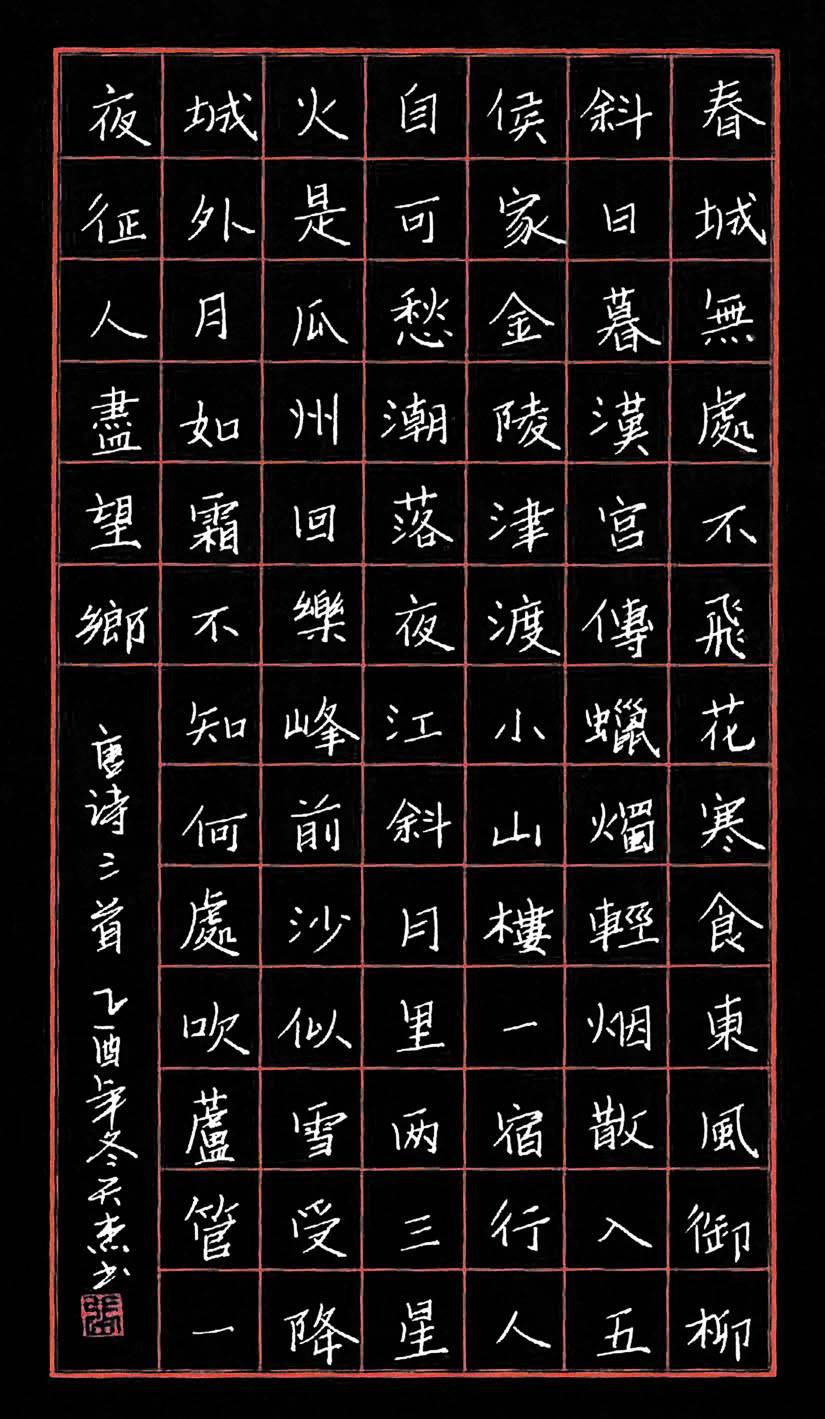 春城無處不飛花寒食東風御柳
斜日暮漢宮傳蠟燭輕烟散入五
侯家金陵津渡小山樓一宿行人
自可愁潮落夜江斜月里两三星
火是瓜州回樂峰前沙似雪受降
城外月如霜不知何處吹蘆管一
夜征人盡望鄉
唐诗三首 乙酉年冬天杰书